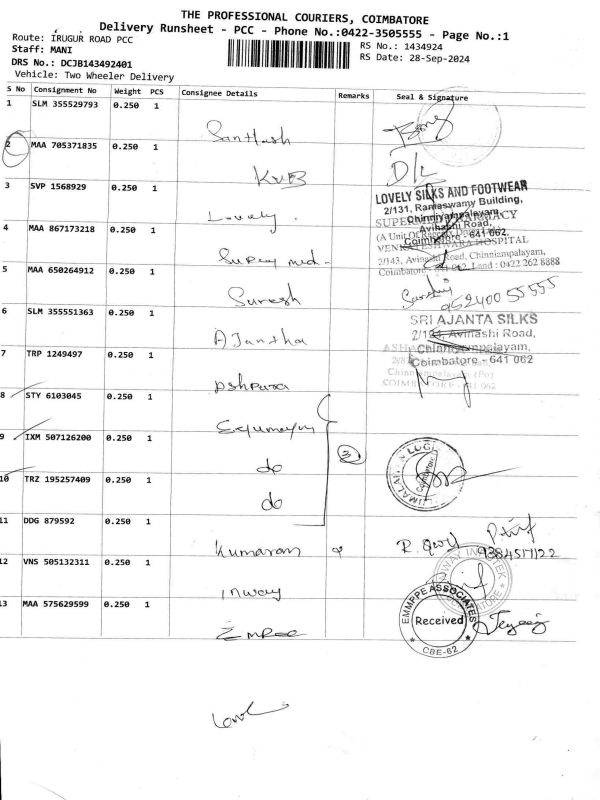 THE PROFESSIONAL COURIERS, COIMBATORE
Delivery Runsheet - PCC - Phone No.:0422-3505555 - Page No.:1
Route: IRUGUR ROAD PCC
Staff: MANI
DRS No.: DCJB143492401
Vehicle: Two Wheeler Delivery
RS No.: 1434924
RS Date: 28-Sep-2024
S No Consignment No Weight PCS Consignee Details Remarks Seal & Signature
1 SLM 355529793 0.250 1
Santhosh
2 MAA 705371835 0.250 1
KVB D/L
3 SVP 1568929 0.250 1
Lovely.
LOVELY SILKS AND FOOTWEAR
2/131, Ramaswamy Building,
Chinniyampalayam,
Avinashi Road,
Coimbatore - 641 062.
4 MAA 867173218 0.250 1
(A Unit Of
VENKATESHWARA HOSPITAL
2/143, Avinashi Road, Chinniyampalayam,
Coimbatore - 641 062. Land : 0422 262 8888
5 MAA 650264912 0.250 1
Suresh
95240055555
6 SLM 355551363 0.250 1
AJantha
SRI AJANTA SILKS
Avinashi Road,
Chinniyampalayam,
Coimbatore - 641 062
7 TRP 1249497 0.250 1
8 STY 6103045 0.250 1
9 IXM 507126200 0.250 1
do
3
10 TRZ 195257409 0.250 1
do
11 DDG 879592 0.250 1
Kumaran
9384517122
12 VNS 505132311 0.250 1
Inway
13 MAA 575629599 0.250 1
EMMPPE ASSOCIATES
Received
CBE-62